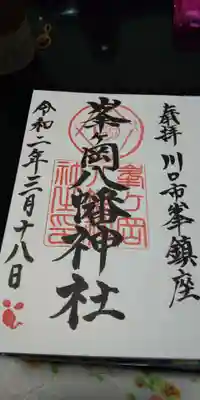 奉拝 川口市峯鎮座
峯ヶ岡八幡神社
令和二年三月十八日